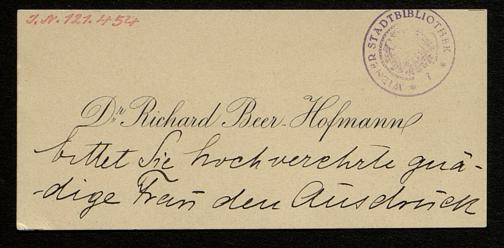 I.N. 121.454
WIENER STADTBIBLIOTHEK
Dr. Richard Beer-Hofmann
bittet Sie hochverehrte gnä-
-dige Frau den Ausdruck